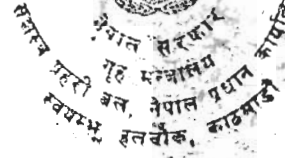 नेपाल सरकार
गृह मन्त्रालय
सशस्त्र प्रहरी बल, नेपाल प्रधान
स्वयम्भू हलचोक, काठमाडौं